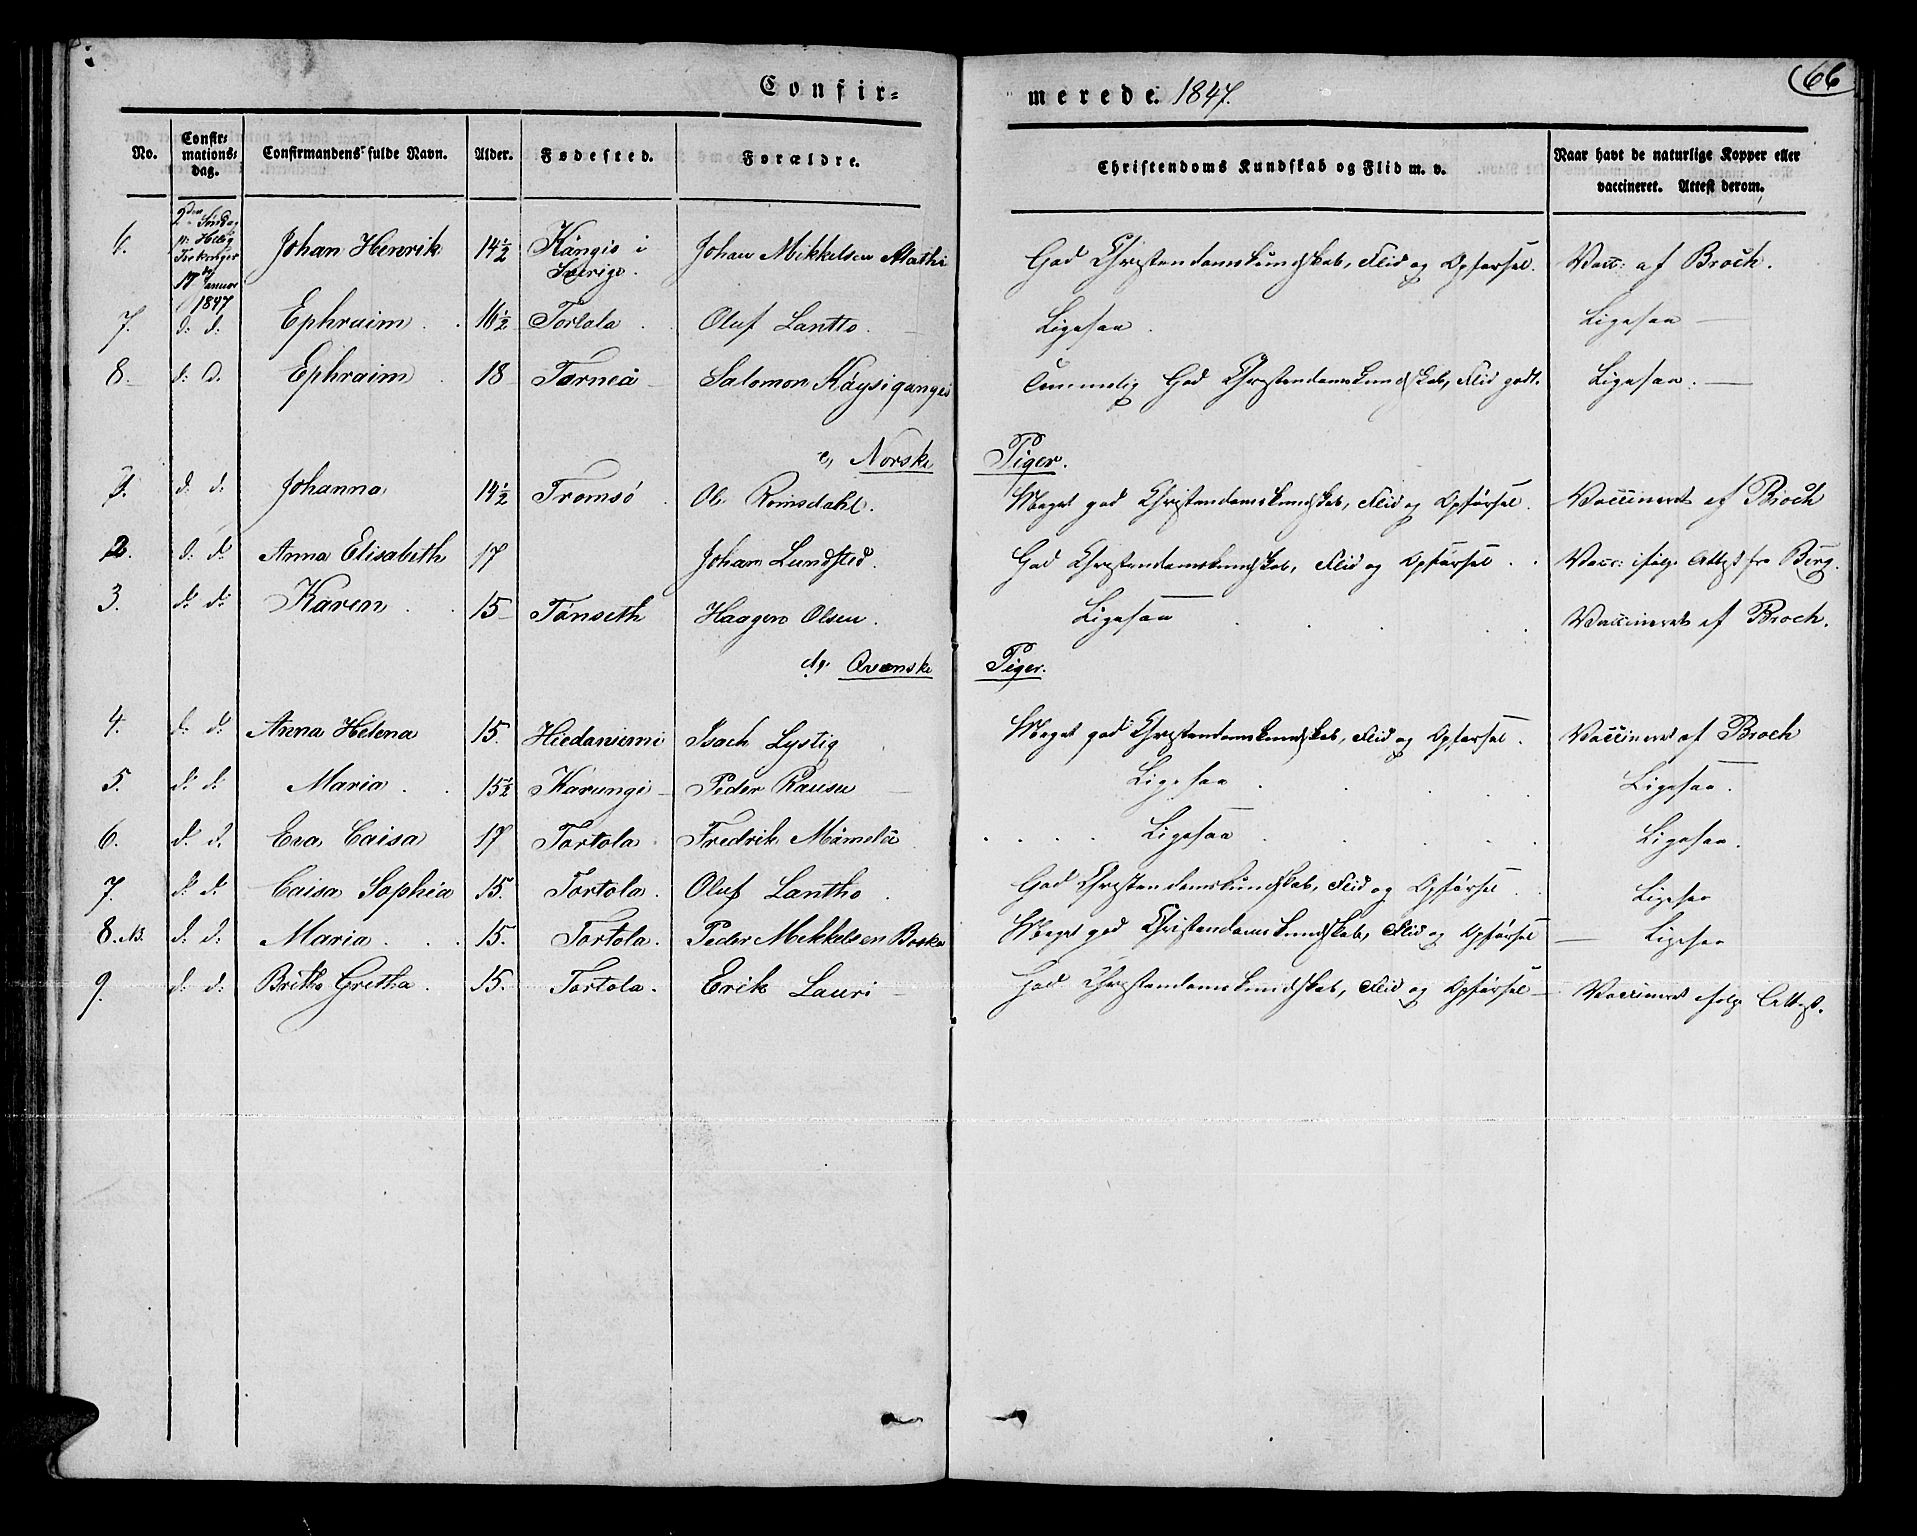 Confir=
merede. 1847.
66
No.
Confir=
mations=
dag.
Confirmandens fulde Navn.
Alder.
Fødested.
Forældre.
Christendoms Kundskab og Flid m. v.
Naar havt de naturlige Kopper eller
vaccineret. Attest derom.
2den Søndag
17
1847
Johan Henrik 14½ Kängis i Johan Mikkelsen Mathi God Christendomskundskab, Flid og Opførsel. Vacc: af Broch.
Sverige.
7. d: d: Ephraim 16½ Tortola Oluf Lantto Ligesaa Ligesaa
8. d: d. Ephraim 18 Torneå Salomon Käysiganges Temmelig God Christendomskundskab, Flid godt. Ligesaa.
c, Norske Piger.
1. d: d: Johanna 14½ Tromsø Ole Romsdahl. Meget god Christendomskundskab, Flid og Opførsel. Vaccineret af Broch
2. d: d: Anna Elisabeth 17 Johan Lundsted. God Christendomskundskab, Flid og Opførsel. Vacc: ifølge Attest fra Berg.
3. d: d: Karen 15 Tønseth Haagen Olsen. Ligesaa Vaccineret af Broch.
d, Qvænske Piger.
4. d: d: Anna Helena 15. Hiedaniemi Isach Lystig Meget god Christendomskundskab, Flid og Opførsel. Vaccineret af Broch
5. d: d: Maria 15½ Karungi Peder Rausu Ligesaa Ligesaa.
6. d: d. Eva Caisa 17 Tortola Fredrik Mämelä Ligesaa Ligesaa.
7. d: d: Caisa Sophia 15. Tortola. Oluf Lantho God Christendomskundskab, Flid og Opførsel. Ligesaa
8. NB. d: d: Maria 15. Tortola. Peder Mikkelsen Meget god Christendomskundskab, Flid og Opførsel Ligesaa
9. d: d: Britha Gretha. 15. Tortola. Erik Lauri God Christendomskundskab, Flid og Opførsel Vaccineret ifølge Attest.